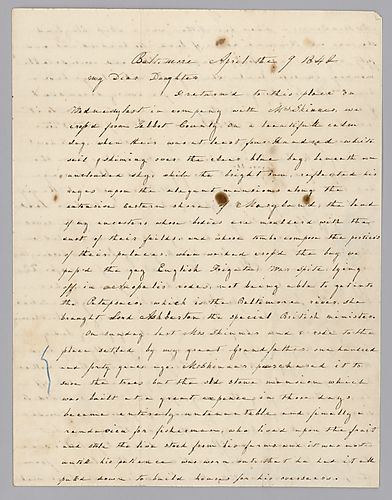 Baltimore April the 9 1842
my Dear Daughter
I returned to this place on
Wednesday last in company with Mr Skinner, we
cross'd from Talbot County on a beautifull calm
day, when their was at least four Hundred white
sails glimering over the clear blue bay, beneath an
unclouded sky, while the bright sun, reflected his
rays upon the elegant mansions along the
extensive Eastern shore of Maryland, the land
of my ancestors whose bodies are mouldered with the
dust of their fields, and whose tombs compose the
of their palaces, when we had cross'd the bay we
pass'd the gay English Frigate, War spite lying
off in annapolis rodes, not being able to get into
the Patapsco, which is the Baltimore river, she
brought Lord Ashburton the special British minister.
On sunday last Mr Skinner and I rode to the
place settled by my great Grandfather, one hundred
and forty years ago. Mr Skinner purchased it to
save the trees but the old stone mansion which
was built at a great expence in those days,
became entirely untenantable and finally a
randavoo for fishermen, who lived upon the fruit
and stole the live stock from his farms and it was not
until his patience was worn out that he had it all
pull'd down to build houses for his overseers.